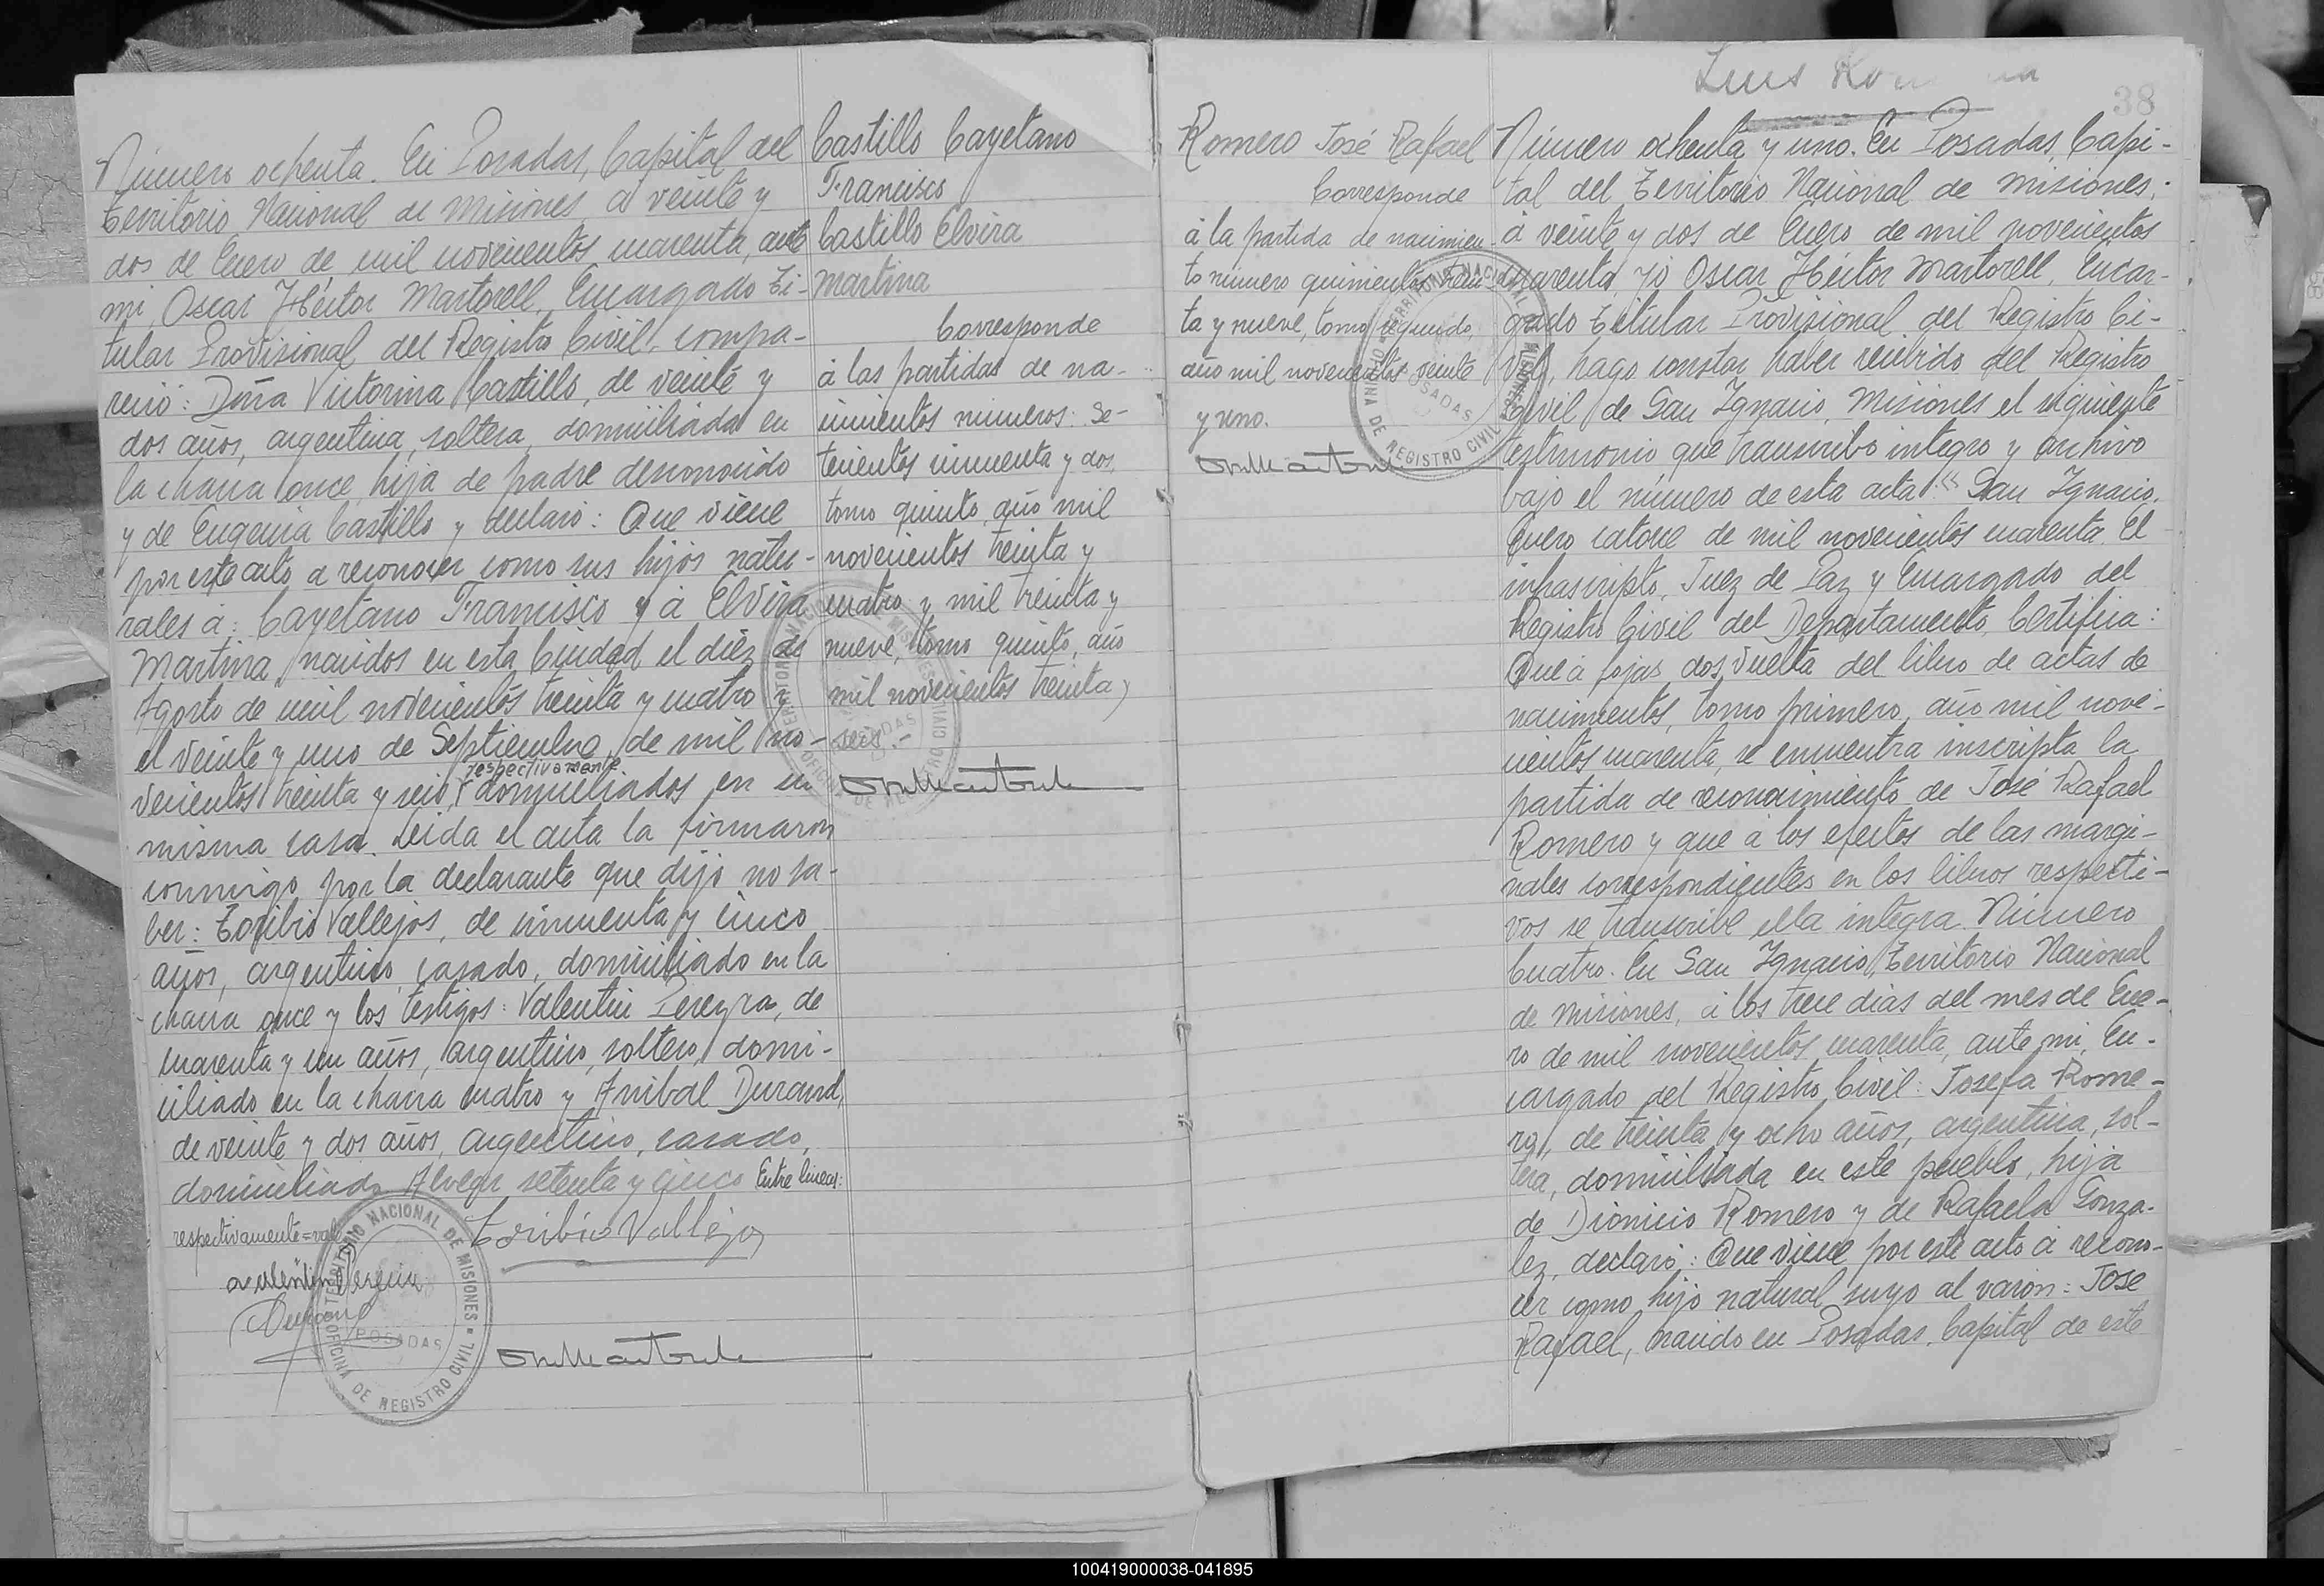 Número ochenta. En Posadas, Capital del
Territorio Nacional de Misiones, a veinte y
dos de Enero de mil novecientos cuarenta, ante
mi, Oscar Héctor Martorell, Encargado Ti-
tular Provisional del Registro Civil, compa-
reció: Doña Victorina Castillo, de veinte y
dos años, argentina, soltera, domiciliada en
la chacra once, hija de padre desconocido
y de Eugenia Castillo y declaró: Que viene
por este acto a reconocer como sus hijos natu-
rales á: Cayetano Francisco y á Elvira
Martina, nacidos en esta Ciudad el diéz de
Agosto de mil novecientos treinta y cuatro y
el veinte y uno de Septiembre de mil no-
respectivamente
vecientos treinta y seis, domiciliados en su
misma casa. Leida el acta la firmaron
conmigo por la declarante que dijo no sa-
ber: Toribio Vallejos, de cincuenta y cinco
años, argentino, casado, domiciliado en la
chacra once y los testigos: Valentín Pereyra, de
cuarenta y un años, argentino, soltero, domi-
ciliado en la chacra cuatro y Anibal Durand,
de veinte y dos años, argentino, casado,
domiciliado Alvear setenta y cinco Entre lineas:
respectivamente=vale
Toribio Vallejos
Valentin Pereyra
Durand
TERRITORIO NACIONAL DE MISIONES
POSADAS
OFICINA DE REGISTRO CIVIL
Castillo Cayetano
Francisco
Castillo Elvira
Martina
Corresponde
á las partidas de na-
cimientos números: Se-
tecientos cincuenta y dos,
tomo quinto, año mil
novecientos treinta y
cuatro y mil treinta y
nueve, tomo quinto, año
mil novecientos treinta y
seis.-
TERRITORIO NACIONAL DE MISIONES
POSADAS
OFICINA DE REGISTRO CIVIL
Romero José Rafael
Corresponde
á la partida de nacimien-
to número quinientos trein-
ta y nueve, tomo segundo,
año mil novecientos veinte
y uno.
TERRITORIO NACIONAL DE MISIONES
POSADAS
OFICINA DE REGISTRO CIVIL
Luis
38
Número ochenta y uno. En Posadas, Capi-
tal del Territorio Nacional de Misiones,
á veinte y dos de Enero de mil novecientos
cuarenta, yo Oscar Héctor Martorell, Encar-
gado Titular Provisional del Registro Ci-
vil, hago constar haber recibido del Registro
Civil de San Ignacio, Misiones el siguiente
testimonio que transcribo integro y archivo
bajo el número de esta acta: "San Ignacio,
Enero catorce de mil novecientos cuarenta. El
infrascripto, Juez de Paz y Encargado del
Registro Civil del Departamento, Certifica:
Que á fojas dos vuelta del libro de actas de
nacimientos, tomo primero, año mil nove-
cientos cuarenta, se encuentra inscripta la
partida de reconocimiento de José Rafael
Romero y que á los efectos de las margi-
nales correspondientes en los libros respecti-
vos se transcribe ella integra. Número
Cuatro. En San Ignacio, Territorio Nacional
de Misiones, á los trece dias del mes de Ene-
ro de mil novecientos cuarenta, ante mi, En-
cargado del Registro Civil: Josefa Rome-
ro, de treinta y ocho años, argentina, sol-
tera, domiciliada en este pueblo, hija
de Dionicio Romero y de Rafaela Gonza-
lez, declaró: Que viene por este acto á recono-
cer como hijo natural suyo al varon: José
Rafael, nacido en Posadas, Capital de este
100419000038-041895